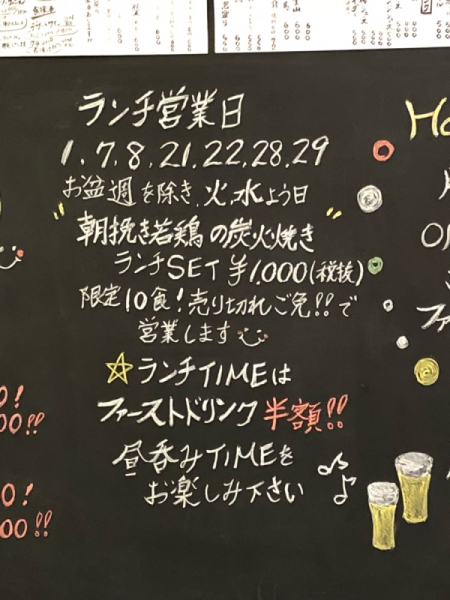 ランチ営業日
1.7.8.21.22.28.29
お盆週を除き、火、水よう日
"朝挽き若鶏の炭火焼き"
ランチSET ¥1.000(税抜)
限定10食!売り切れご免!!で
営業します
☆ランチTIMEは
ファーストドリンク半額!!
昼呑みTIMEを
お楽しみ下さい♪
0!
00!!
0!
00!!
Ha
ファ